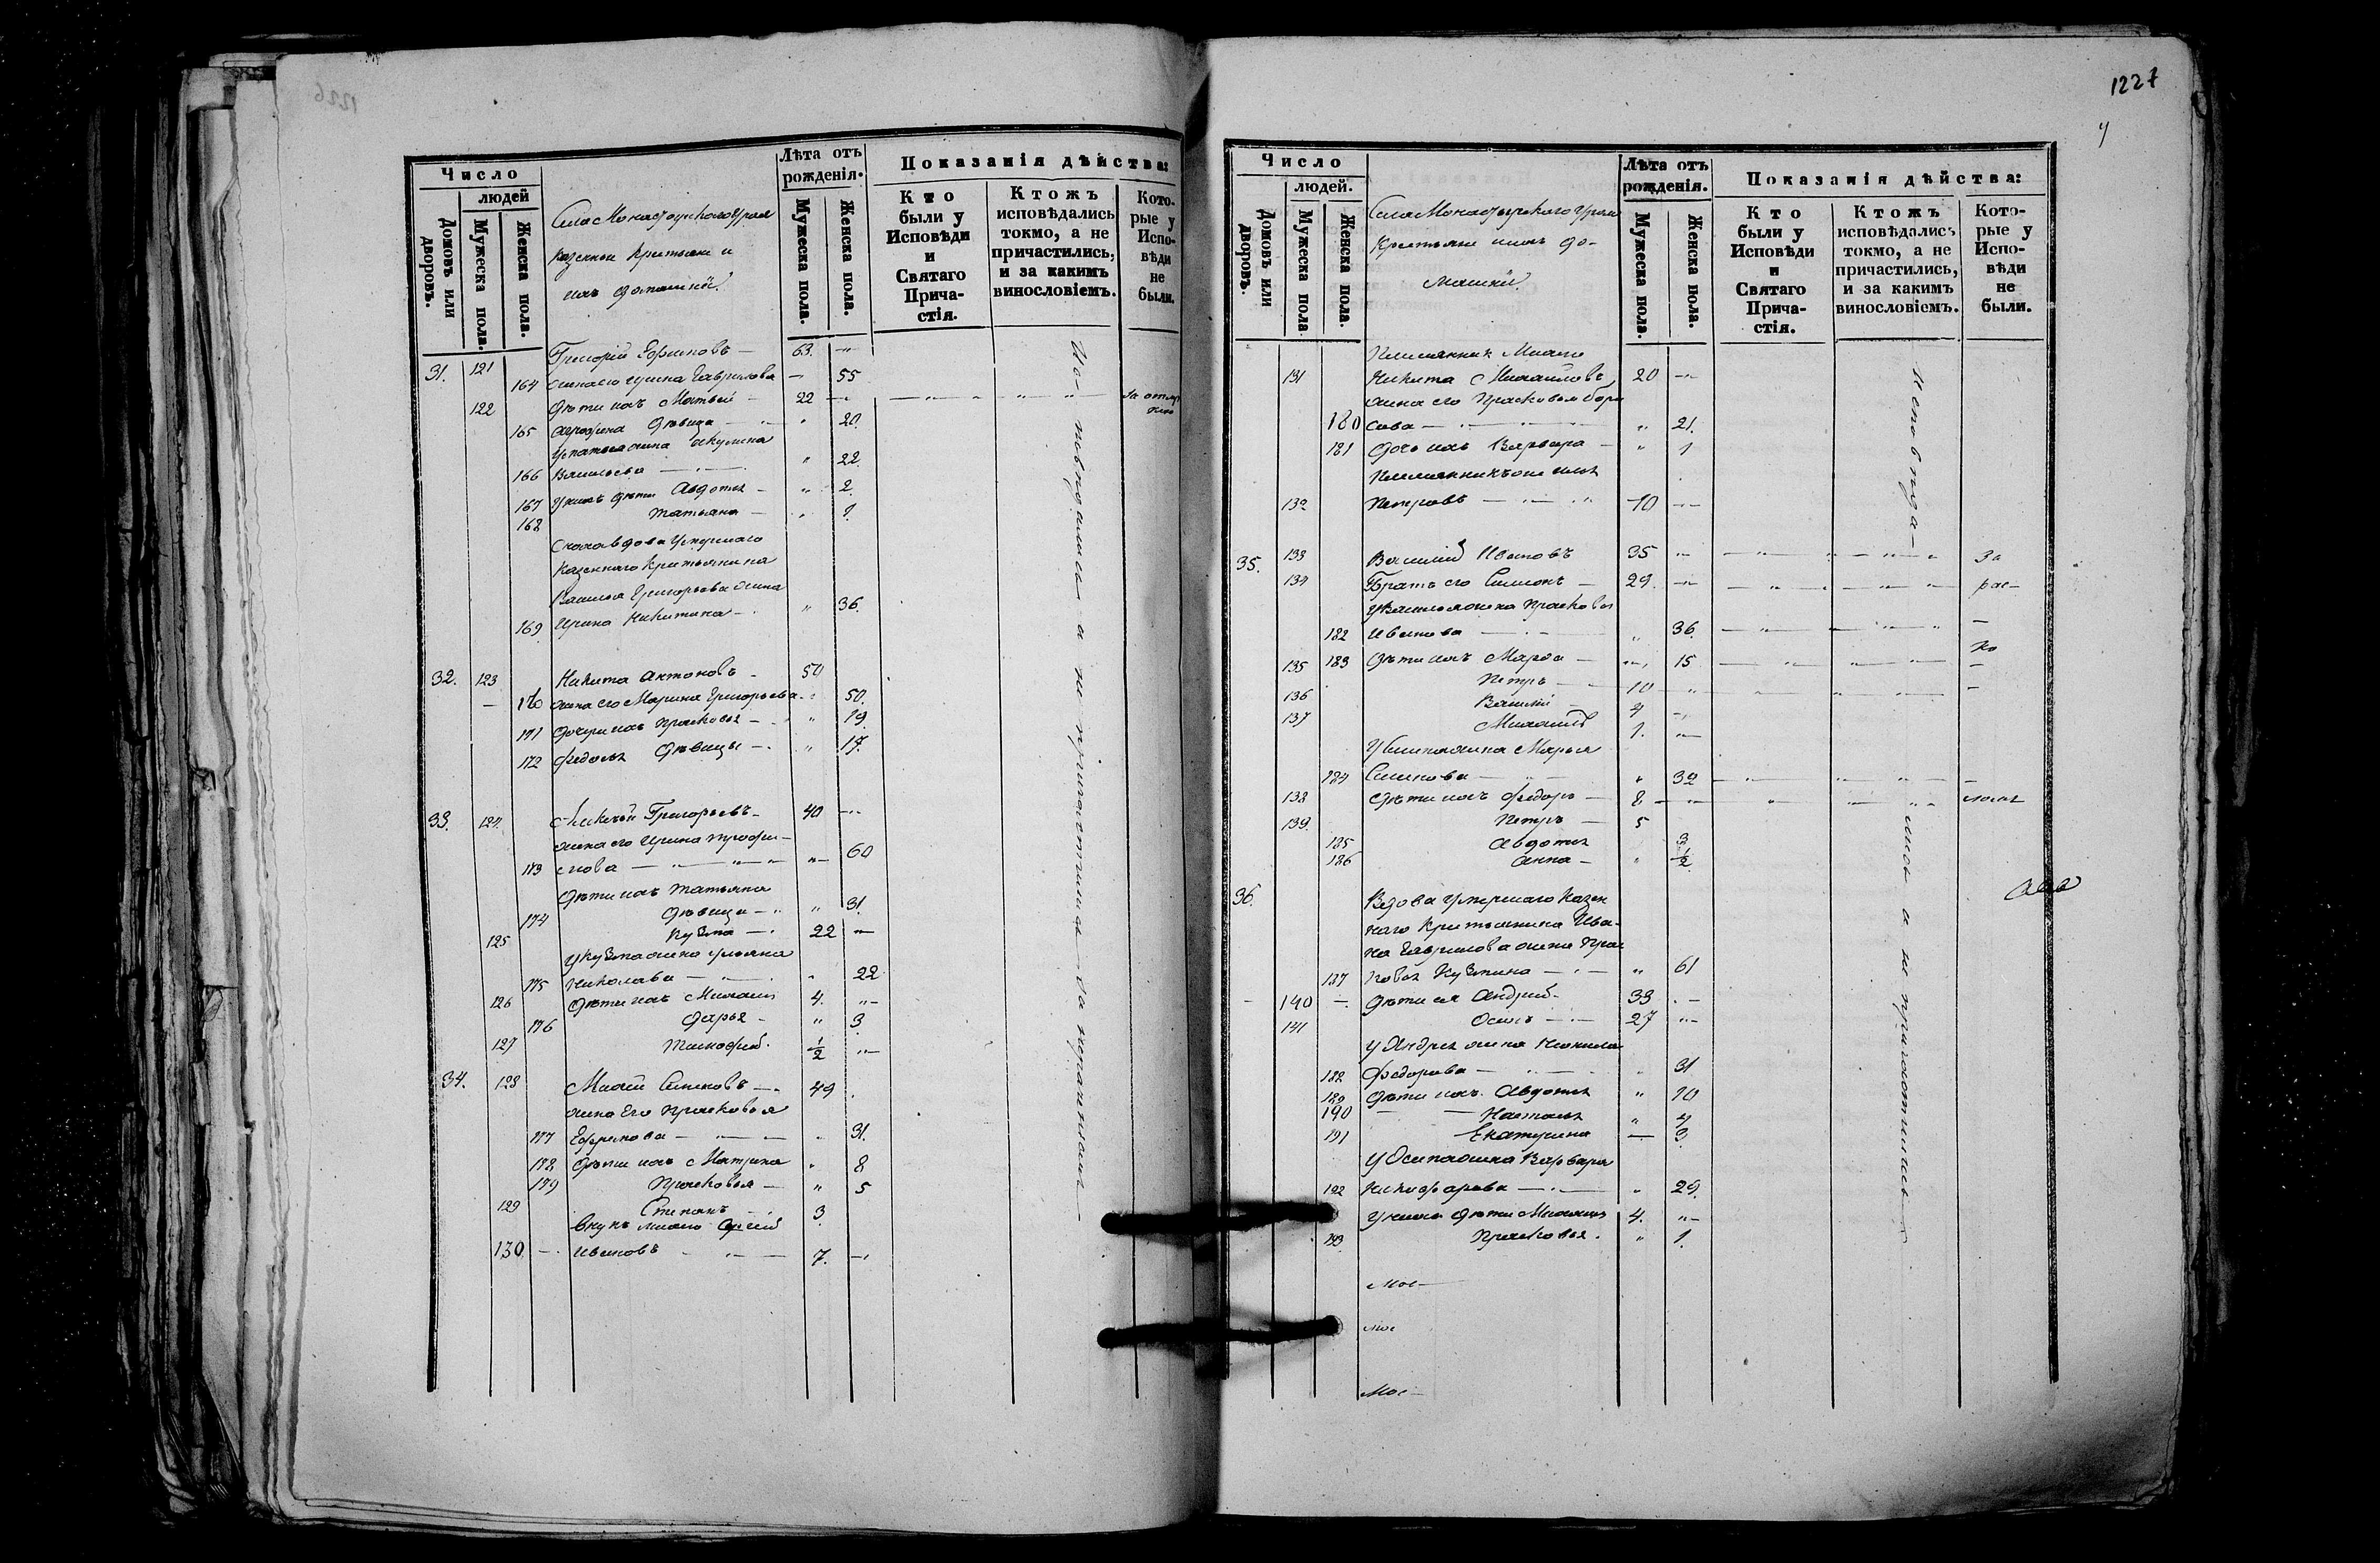 1227
Число
людей
Домовъ или дворовъ.
Мужеска пола.
Женска пола.
Села Монастырскаго Урая
казенныи Крестьяне и
ихъ домашнiи
Лѣта отъ рожденiя.
Мужеска пола.
Женска пола.
Показанiя дѣйства:
Кто были у Исповѣди и Святаго Прича-стiя.
Ктожъ исповѣдались токмо, а не причастились, и за какимъ винословiемъ.
Кото-рые у Испо-вѣди не были.
31. 121 Григорiй Ефимовъ — 63.
164 жена его Гаврилова — 55
122 дѣти ихъ Матвей — 22 За отлу
165 дѣвица — 20.
У жена Акулина
166 Васильева — 22
167 У нихъ дѣти Авдотья — 2.
168 Татьяна —
вдова Умершаго
Казеннаго Крестьянина
Василья Григорьева жена
169 Ирина Никитина — 36.
32. 123 Никита Антоновъ — 50
170 жена его Марина Григорьева — 50.
171 дочери ихъ Прасковья — 19
172 Федосья дѣвицы — 17.
33. 124 Григорьевъ — 40
жена его Ирина Трофи-
173 мова — 60
дѣти ихъ Татьяна
174 дѣвица — 31.
125 Кузма — 22
У Кузмы жена Ульяна
175 Николаева — 22
126 дѣти ихъ Михаилъ 4.
176 Дарья — 3
127 Тимофей. ½
34. 128 Михей Семеновъ — 49
жена Его Прасковья
177 Ефремова — 31.
178 дѣти ихъ Матрена 8
179 Прасковья — 5
129 Степанъ 3
Внукъ Михея Сергѣй
130 Ивановъ — 7.
Исповѣдались а не причастились за
Число
людей.
Домовъ или дворовъ.
Мужеска пола.
Женска пола.
Села Монастырскаго Урая
Крестьяне ихъ до-
машнiи
Лѣта отъ рожденiя.
Мужеска пола.
Женска пола.
Показанiя дѣйства:
Кто были у Исповѣди и Святаго Прича-стiя.
Ктожъ исповѣдались токмо, а не причастились, и за какимъ винословiемъ.
Кото-рые у Испо-вѣди не были.
Племянникъ Михея
131 Никита Михайловъ 20
жена его Прасковья Бори
180 сова — 21.
181 Дочь ихъ Варвара — 1
Племянникъ
132 Петровъ — 10
35. 133 Василiй Ивановъ 35 За
134 Братъ его Симионъ — 29. рас-
У Василья жена Прасковья
182 Иванова — 36
183 дѣти ихъ Марфа — 15 ко
135 Петръ — 10
136 Василiй — 4
137 Михаилъ 1.
У Симиона жена Марья
184 Семенова — 32
138 дѣти ихъ Федоръ — 8
139. Петръ — 5
185 Авдотья 3
186 Анна — ½
36. Вдова Умершаго Казен
наго Крестьянина Ива-
на Гаврилова жена Прас
187 ковья Кузмина — 61
140 дѣти ея Андрей. 33
141 Осипъ — 27
У Андрея жена Неонила
182 Федорова — 31
189 дѣти ихъ Авдотья 10
190 Наталья 4
191 Екатерина — 3
У Осипа жена Варвара
192 Никифорова — 29.
У нихъ дѣти Михаилъ 4.
193 Прасковья. 1.
Исповѣда-
лись а не причастились